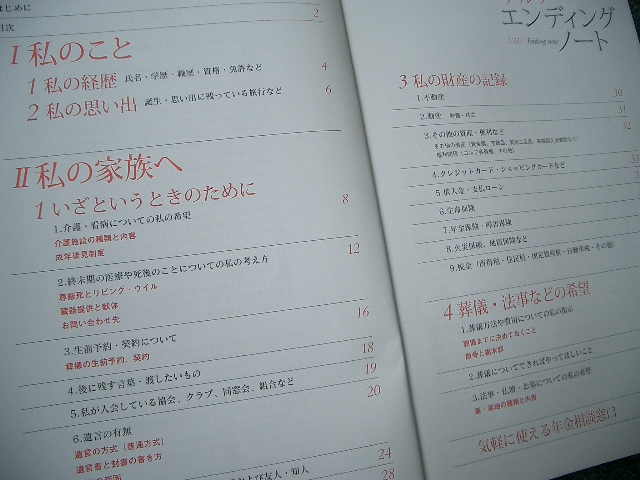 はじめに
目次 2
I 私のこと
1 私の経歴 氏名・学歴・職歴・資格・免許など 4
2 私の思い出 誕生・思い出に残っている旅行など 6
II 私の家族へ
1 いざというときのために 8
1.介護・看病についての私の希望
介護施設の種類と内容
成年後見制度
2.終末期の医療や死後のことについての私の考え方 12
尊厳死とリビング・ウイル
臓器提供と献体
お問い合わせ先
3.生前予約・契約について 16
葬儀の生前予約、契約
4.後に残す言葉・渡したいもの 18
5.私が入会している協会、クラブ、同窓会、組合など 19
6.遺言の有無 20
遺言の方式(普通方式)
遺言書と封書の書き方
24
および友人・知人 28
エンディング
Ending note
ノート
3 私の財産の記録
1.不動産 30
2.動産 31
3.その他の資産・権利など 32
4.クレジットカード・ショッピングカードなど
5.借入金・支払ローン
6.生命保険
7.年金保険・傷害保険
8.火災保険、地震保険など
9.税金(所得税・住民税・固定資産税・自動車税・その他)
4 葬儀・法事などの希望
1.葬儀方法や費用についての私の指示
葬儀までに決めておくこと
散骨と樹木葬
2.葬儀についてできればやってほしいこと
3.法事・仏壇・お墓についての私の希望
墓・墓地の種類と内容
気軽に使える年金相談窓口